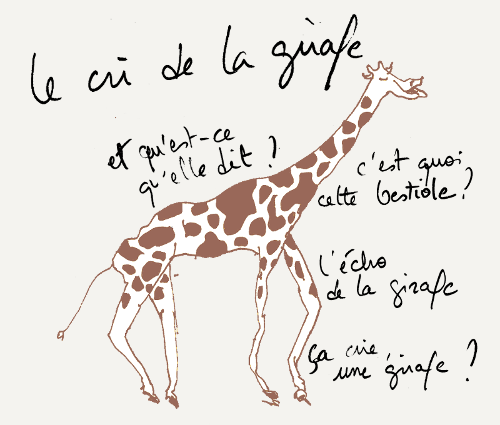 le cri de la girafe
et qu'est-ce
qu'elle dit ?
c'est quoi
cette bestiole ?
l'écho
de la girafe
ça crie
une girafe ?